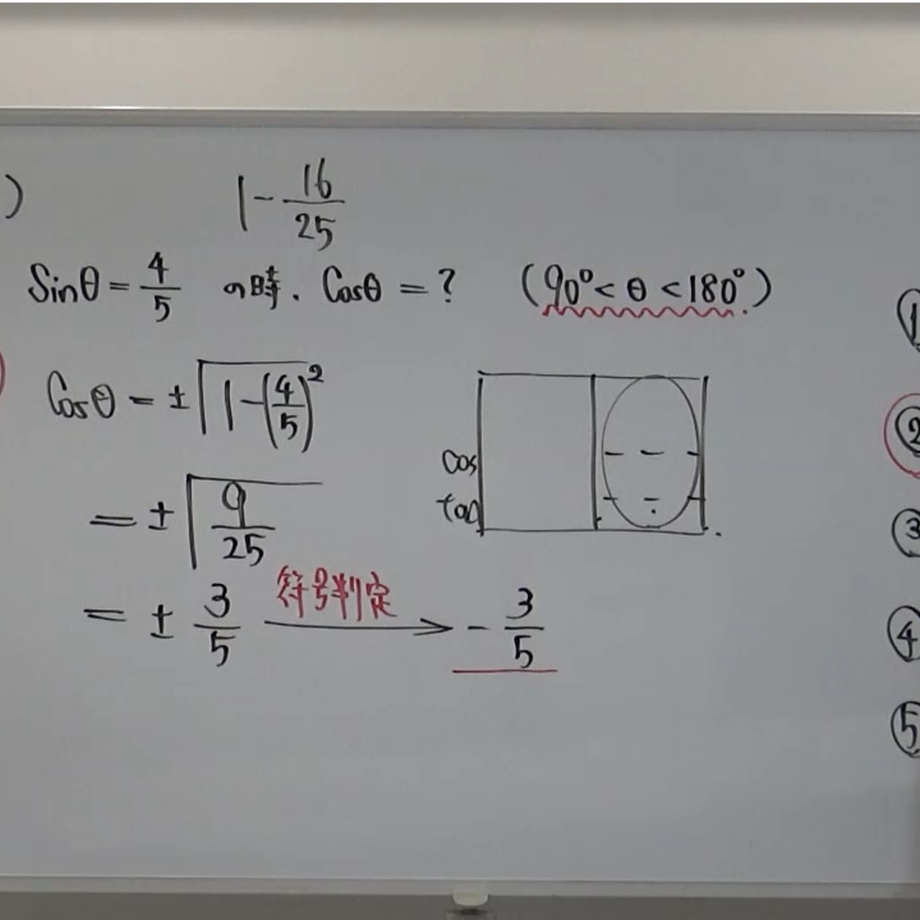 )
1 - 16/25
Sinθ = 4/5 の時、Cosθ = ? (90° < θ < 180°)
Cosθ = ± √1 - (4/5)²
= ± √9/25
= ± 3/5 符号判定 → - 3/5
cos - - -
tan - - -
①
②
③
④
⑤